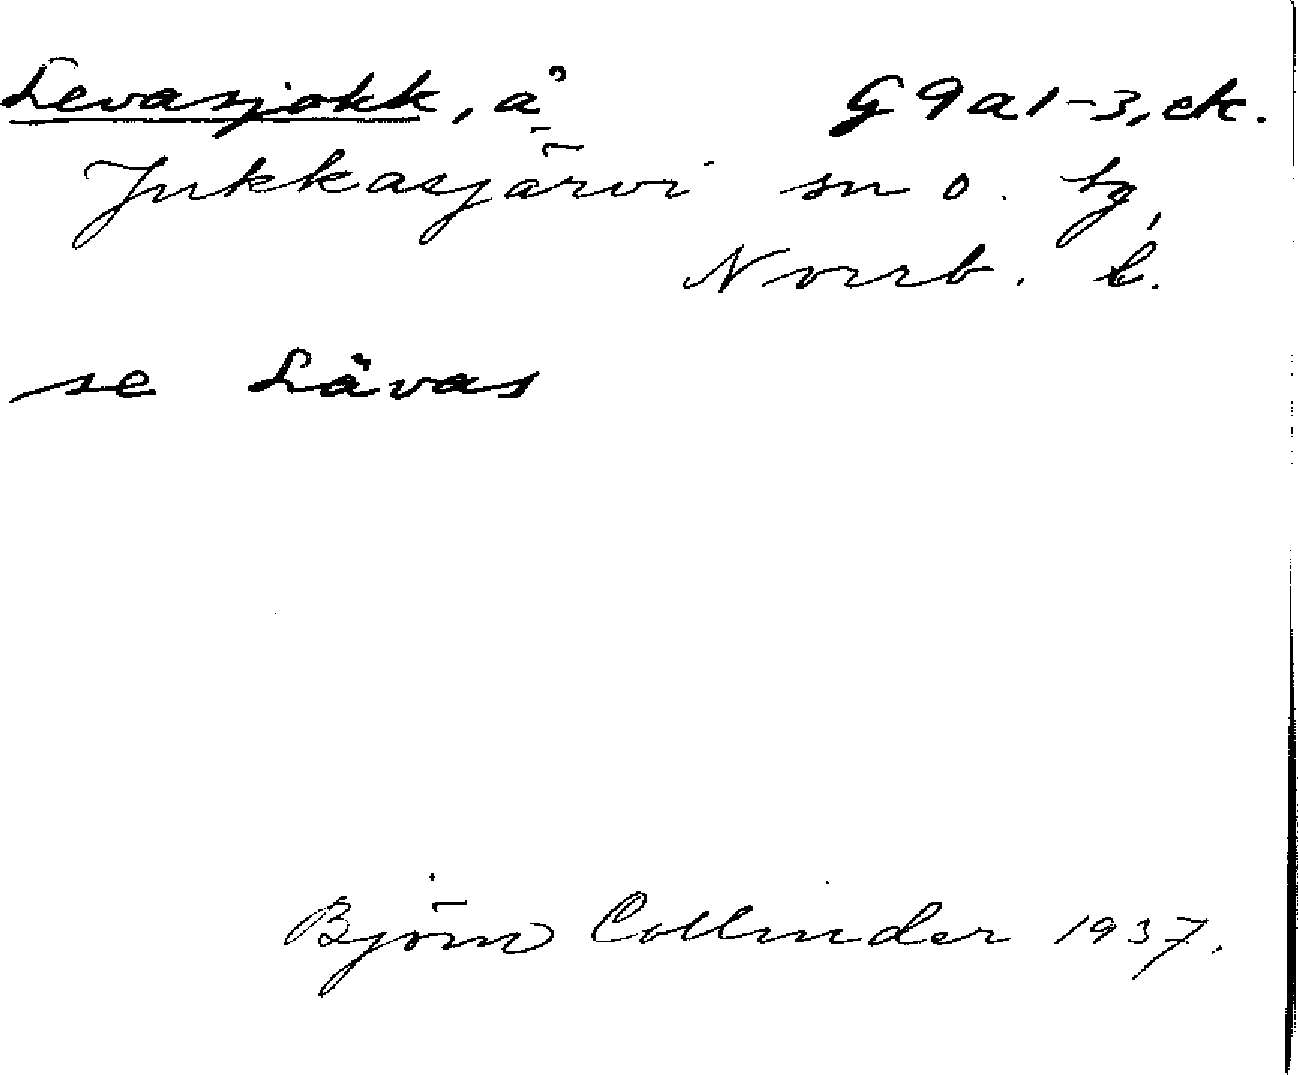 Levasjokk, å G9a1-3, ek.
Jukkasjärvi sn o. tg,
Norrb. l.
se Lävas
Björn Collinder 1937.